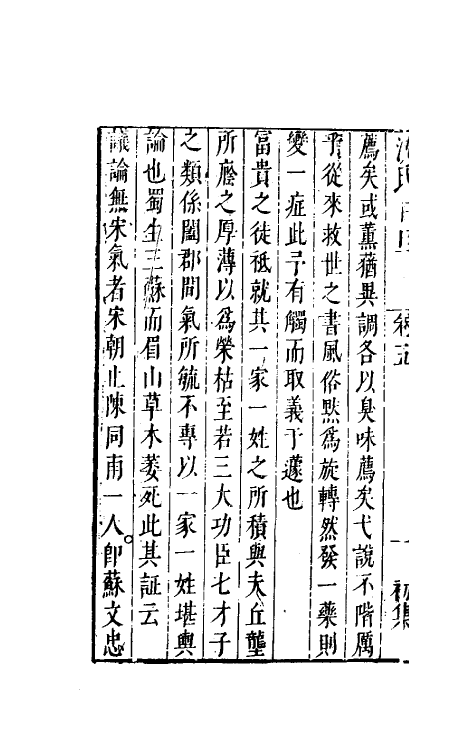 卷五
初集
薦矣或薰蕕異調各以臭味薦矣弋說不階厲
乎從來救世之書風俗默爲旋轉然發一藥則
變一症此予有觸而取義于蘧也
富貴之徒祗就其一家一姓之所積與夫丘壟
所廕之厚薄以爲榮枯至若三大功臣七才子
之類係闔郡間氣所毓不專以一家一姓堪輿
論也蜀生三蘇而眉山草木萎死此其証云
議論無宋氣者宋朝止陳同甫一人卽蘇文忠